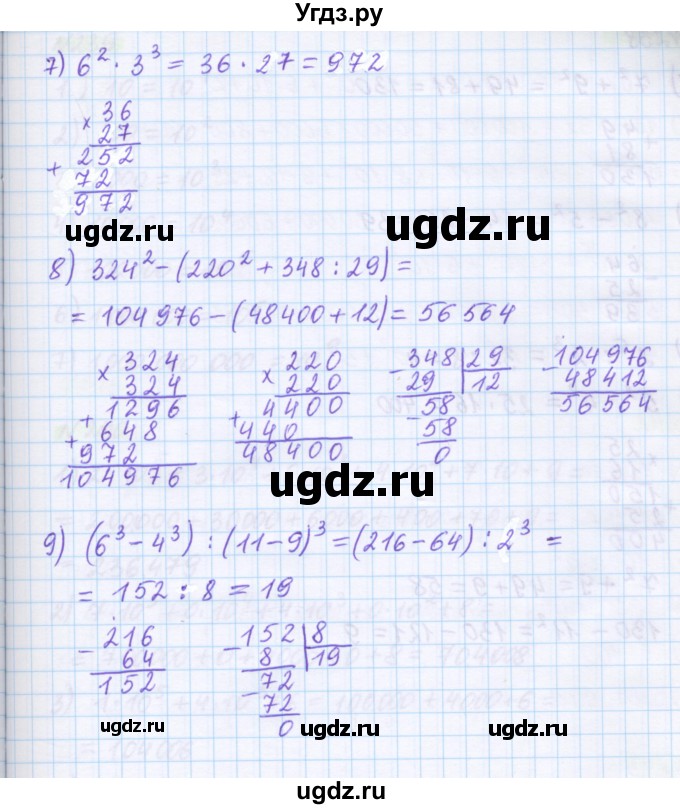 Угдз.ру
7) 6² · 3³ = 36 · 27 = 972
× 36
27
+ 252
72
972
ugdz.ru
ugdz.ru
8) 324² – (220² + 348 : 29) =
= 104 976 – (48400 + 12) = 56 564
× 324
324
+ 1296
+ 648
972
104976
× 220
220
+ 4400
440
48400
– 348 | 29
29 | 12
– 58
58
0
– 104976
48412
56564
ugdz.ru
ugdz.ru
ugdz.ru
9) (6³ – 4³) : (11 – 9)³ = (216 – 64) : 2³ =
= 152 : 8 = 19
– 216
64
152
– 152 | 8
8 | 19
– 72
72
0
ugdz.ru
ugdz.ru
ugdz.ru
ugdz.ru